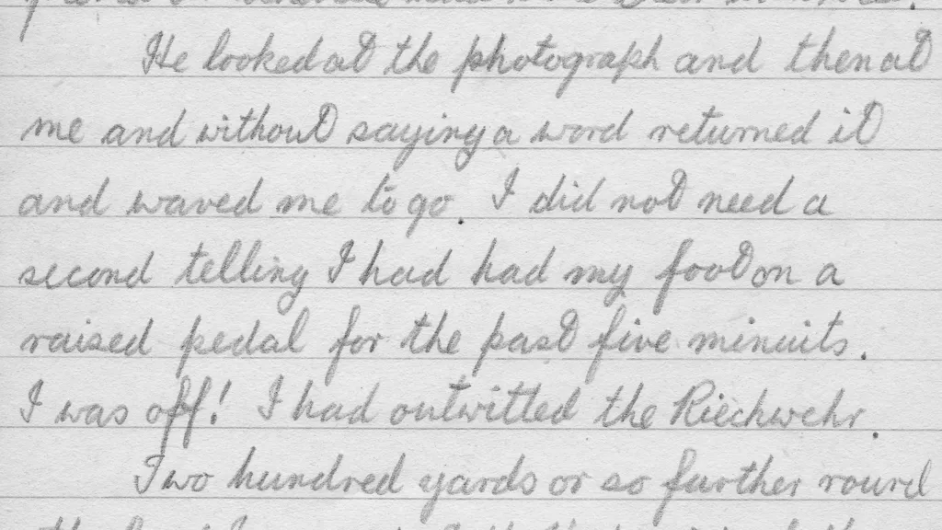 He looked at the photograph and then at
me and without saying a word returned it
and waved me to go. I did not need a
second telling I had had my foot on a
raised pedal for the past five minuits.
I was off! I had outwitted the Riechwehr.
Two hundred yards or so further round